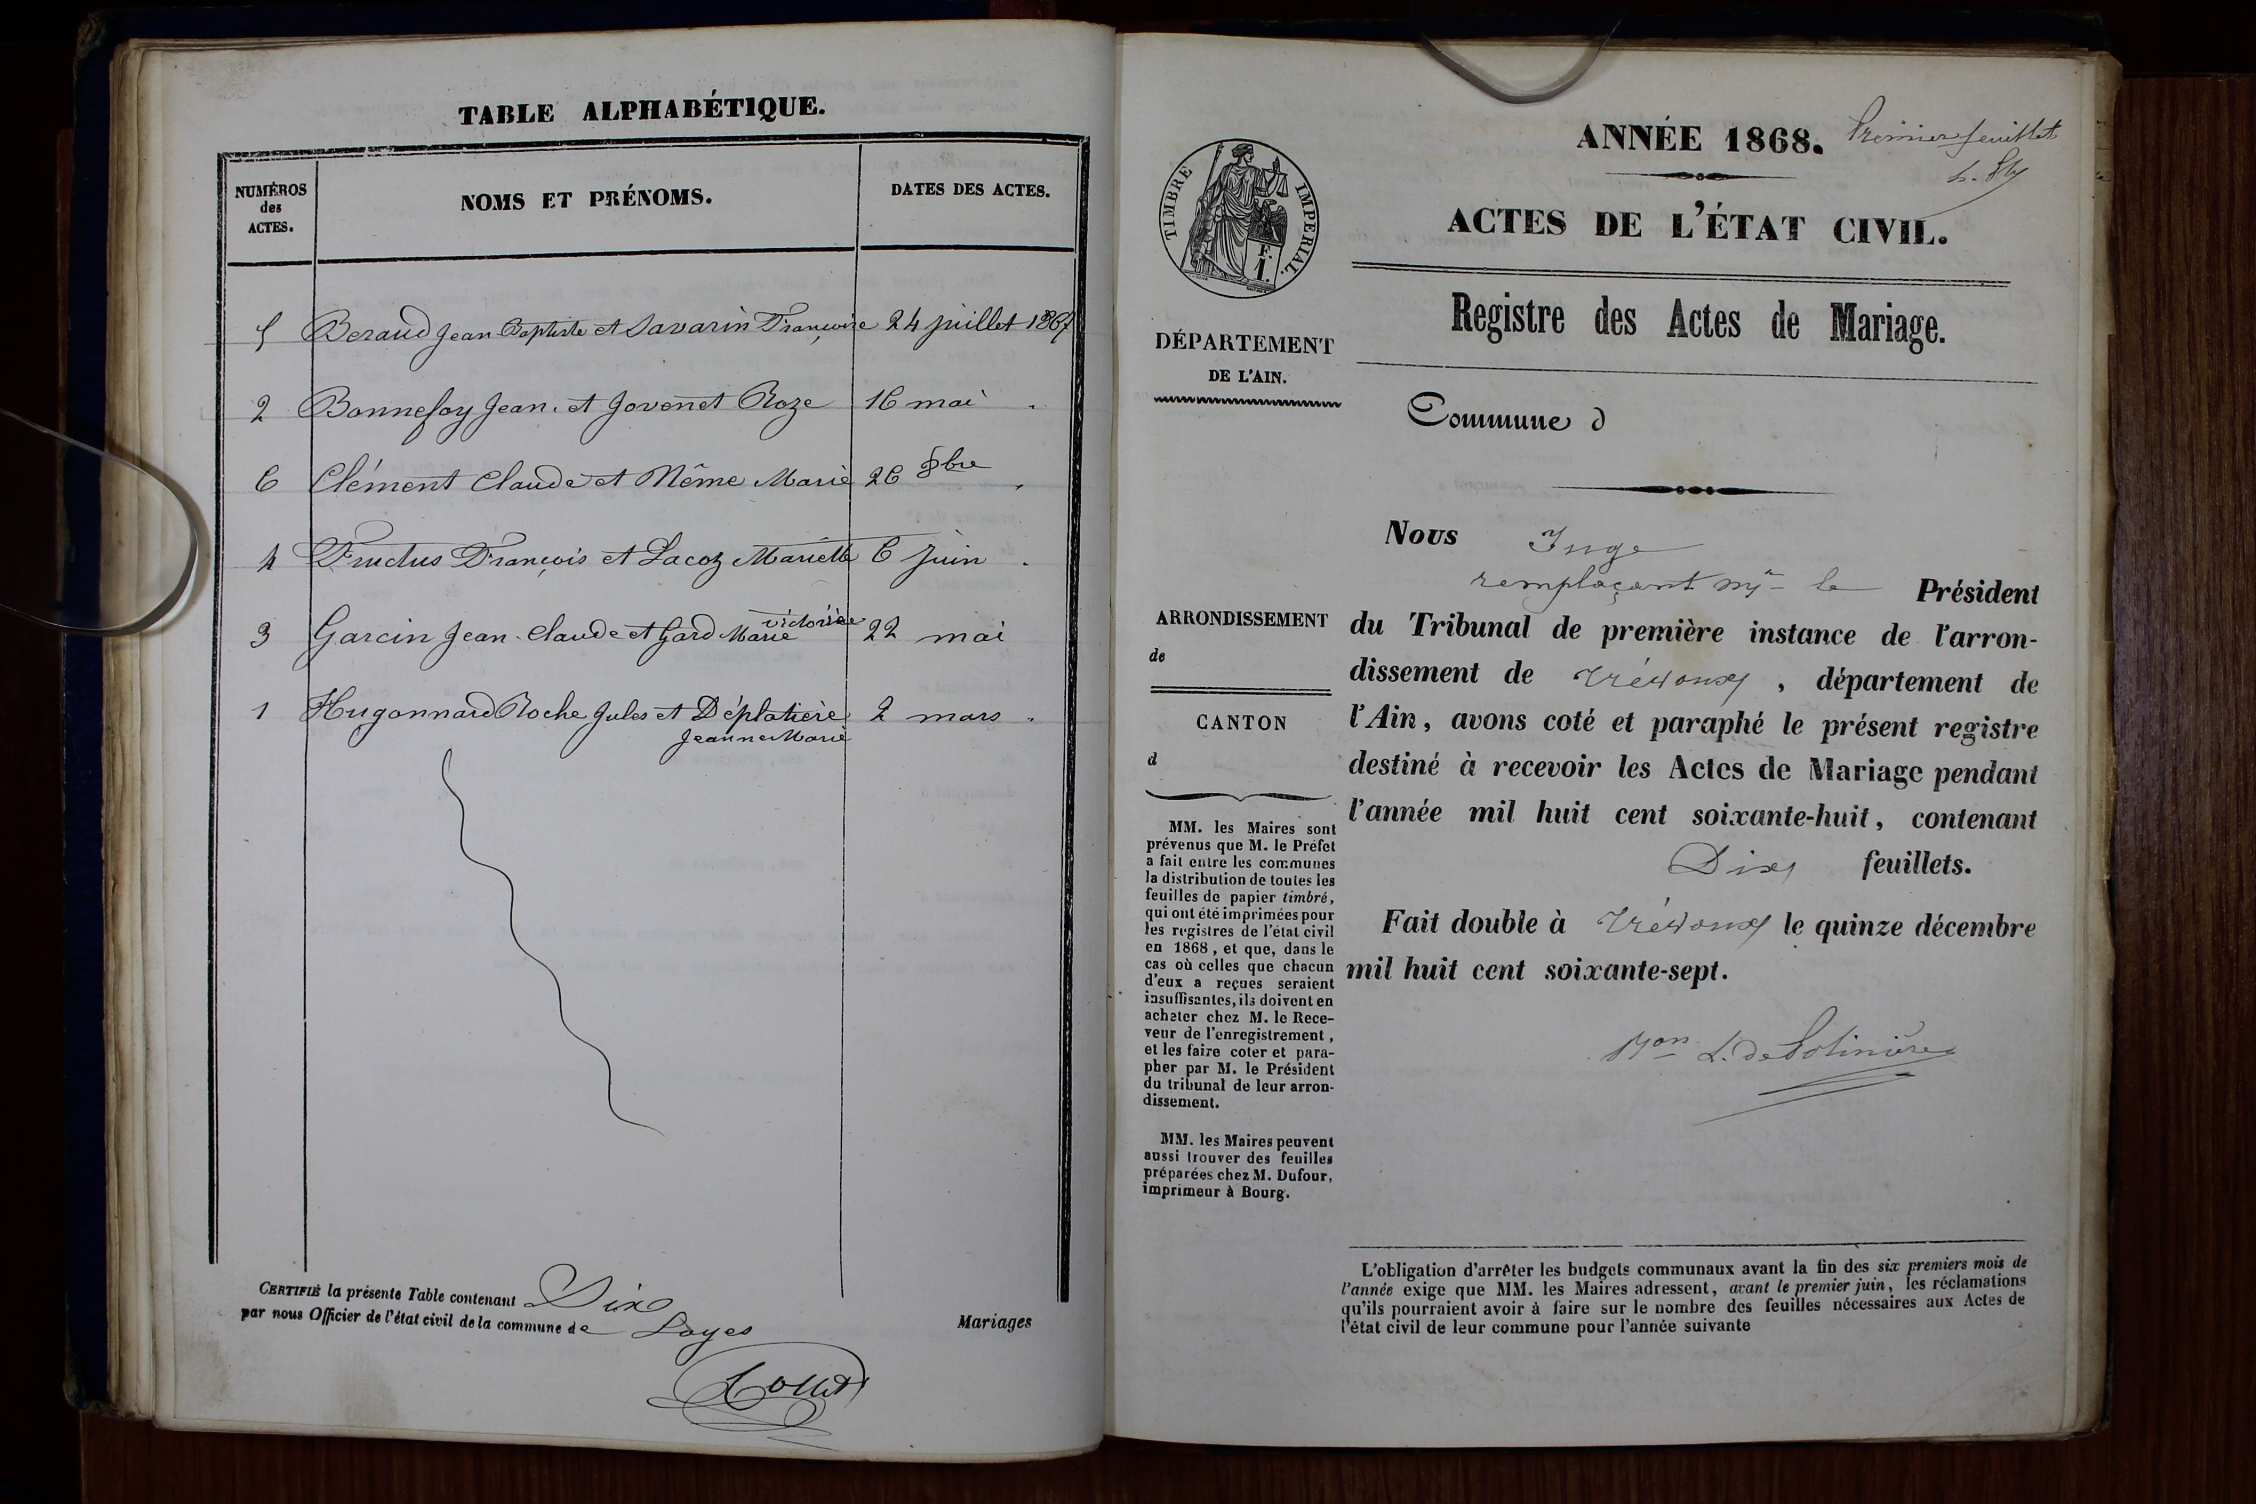 TABLE ALPHABÉTIQUE.
NUMÉROS
des
ACTES.
NOMS ET PRÉNOMS.
DATES DES ACTES.
5 Beraud Jean Baptiste et Savarin Françoise 24 juillet 1867
2 Bonnefoy Jean et Jovenet Roze 16 mai
6 Clément Claude et Même Marie 26 8bre
4 Fructus François et Lacoz Mariette 6 juin
victorine
3 Garcin Jean Claude et Gard Marie 22 mai
1 Hugonnard Roche Jules et Déplatière 2 mars
Jeanne Marie
CERTIFIÉ la présente Table contenant Six
par nous Officier de l'état civil de la commune de Loyes
Mariages
ANNÉE 1868.
Premier feuillet
ACTES DE L'ÉTAT CIVIL.
TIMBRE IMPÉRIAL.
F.
1.
Registre des Actes de Mariage.
DÉPARTEMENT
DE L'AIN.
Commune d
Nous Juge
remplaçant Mr le Président
ARRONDISSEMENT
de
CANTON
d
du Tribunal de première instance de l'arron-
dissement de Trévoux, département de
l'Ain, avons coté et paraphé le présent registre
destiné à recevoir les Actes de Mariage pendant
l'année mil huit cent soixante-huit, contenant
Dix feuillets.
Fait double à Trévoux le quinze décembre
mil huit cent soixante-sept.
MM. les Maires sont
prévenus que M. le Préfet
a fait entre les communes
la distribution de toutes les
feuilles de papier timbré,
qui ont été imprimées pour
les registres de l'état civil
en 1868, et que, dans le
cas où celles que chacun
d'eux a reçues seraient
insuffisantes, ils doivent en
acheter chez M. le Rece-
veur de l'enregistrement,
et les faire coter et para-
pher par M. le Président
du tribunal de leur arron-
dissement.
MM. les Maires peuvent
aussi trouver des feuilles
préparées chez M. Dufour,
imprimeur à Bourg.
L'obligation d'arrêter les budgets communaux avant la fin des six premiers mois de
l'année exige que MM. les Maires adressent, avant le premier juin, les réclamations
qu'ils pourraient avoir à faire sur le nombre des feuilles nécessaires aux Actes de
l'état civil de leur commune pour l'année suivante